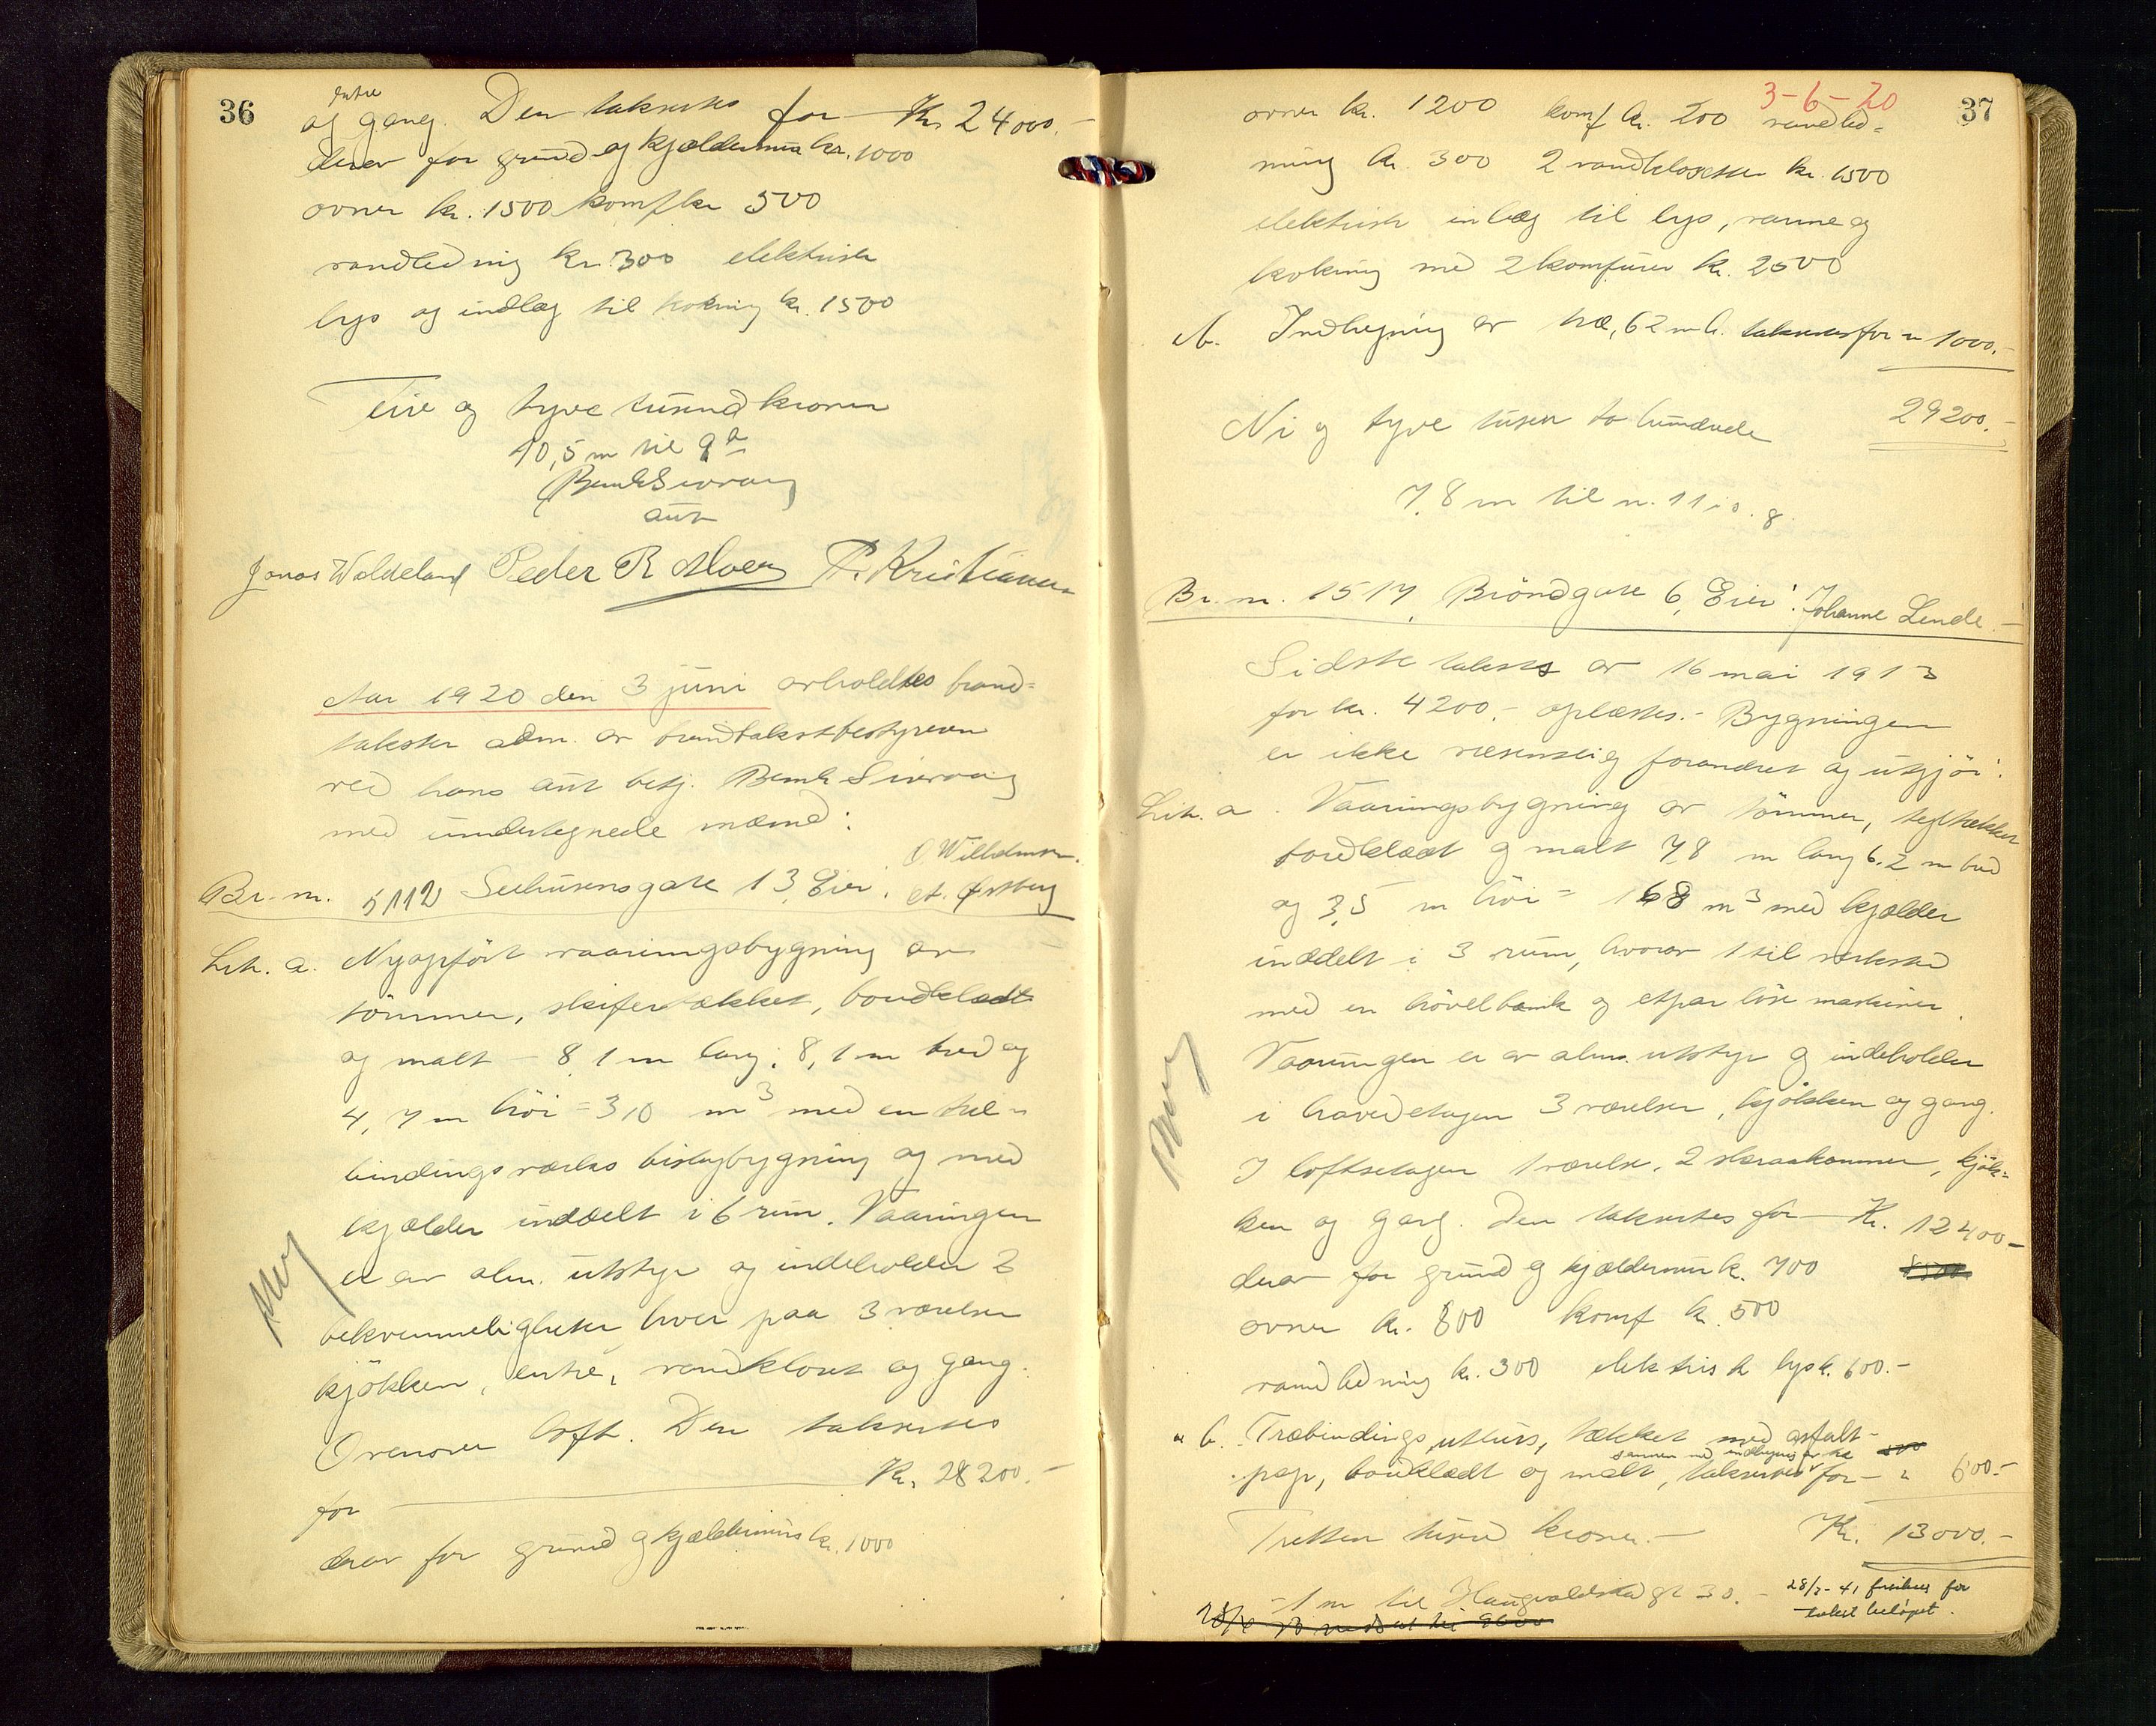 36
entre
og gang. Den takseres for Kr. 24000.-
derav for grund og kjældermur kr. 1000
ovner kr. 1500 komf kr 500
vandledning kr. 300 elektrisk
lys og indlæg til kokning kr. 1500
Fire og tyve tusend kroner
10,5 m til 9 a
Bernh Sivraag
aut
Jonas Waldeland Peder R Moen P. Kristiansen
Aar 1920 den 3 juni avholdtes brand-
takster adm. av brandtakstbestyreren
ved hans aut betj. Bernh Sivraag
med undertegnede mænd:
Br. nr. 5112 Seehusensgate 13, Eier: O Wilhelmsen.
A. Østberg
Lit. a. Nyopført vaaningsbygning av
tømmer, skifertækket, bordklædt
og malt - 8,1 m lang, 8,1 m bred og
4,7 m høi = 310 m3 med en træ-
bindingsverks bislagbygning og med
kjælder inddelt i 6 rum. Vaaningen
er av alm. utstyr og indeholder 2
bekvemmeligheter hver paa 3 værelser
kjøkken, entre, vandkloset og gang.
Ovenover loft. Den takseres
for Kr. 28200.-
derav for grund og kjældermur kr. 1000
3-6-20
37
ovner kr. 1200 komf kr. 200 vandled-
ning kr. 300 2 vandklosetter kr. 1500
elektrisk inlæg til lys, varme og
kokning med 2 komfurer kr. 2500
b. Indhegning av træ, 62 m l. takseres for " 1000.-
Ni og tyve tusen to hundrede 29200.-
7,8 m til n. 11 i s. g.
Br. nr. 1517, Brøndgate 6, Eier: Johanne Lende.-
Sidste takst av 16 mai 1913
for kr. 4200.- oplæstes.- Bygningen
er ikke væsentlig forandret og utgjør:
Lit. a. Vaaningsbygning av tømmer, tegltækket
bordklædt og malt 7,8 m lang 6,2 m bred
og 3,5 m høi = 168 m3 med kjælder
inddelt i 3 rum, hvorav 1 til verksted
med en høvelbænk og etpar løse maskiner.
Vaaningen er av alm. utstyr og indeholder
i hovedetagen 3 værelser, kjøkken og gang.
I loftsetagen 1 værelse, 2 skraakammer, kjøk-
ken og gang. Den takseres for Kr. 12400-
derav for grund og kjældermur k. 700
ovner kr. 800 komf kr. 500
vandledning kr. 300 elektrisk lys k. 600.-
" b. Træbindings uthus, tækket med asfalt-
pap, bordklædt og malt, sammen med indhegning av træ takseres for - " 600.-
Tretten tusend kroner.- Kr. 13000.-
- 1 m til Haugvaldstad gt 30. -
28/2-41 friluns for
takst beløpet.